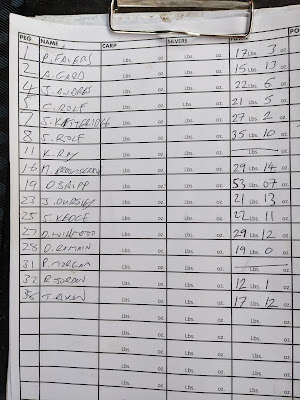 PEG NAME CARP SILVERS PO
1 P. FAVERS Lbs. oz. Lbs. oz. 17 Lbs. 3 oz.
2 A. GARD Lbs. oz. Lbs. oz. 15 Lbs. 13 oz.
4 J. ANDRES Lbs. oz. Lbs. oz. 22 Lbs. 6 oz.
5 C. ROLF Lbs. oz. Lbs. oz. 21 Lbs. 5 oz.
7 Lbs. oz. Lbs. oz. 27 Lbs. 2 oz.
8 S. ROLF Lbs. oz. Lbs. oz. 35 Lbs. 10 oz.
11 K. RAY Lbs. oz. Lbs. oz. oz.
16 M. Lbs. oz. Lbs. oz. 29 Lbs. 14 oz.
19 D SNIPP Lbs. oz. Lbs. oz. 53 Lbs. 07 oz.
23 J. DURSLEY Lbs. oz. Lbs. oz. 21 Lbs. 13 oz.
25 S. Lbs. oz. Lbs. oz. 22 Lbs. 11 oz.
27 Lbs. oz. Lbs. oz. 29 Lbs. 12 oz.
28 D. ROMAIN Lbs. oz. Lbs. oz. 19 Lbs. 0 oz.
31 P. MORGAN Lbs. oz. Lbs. oz. oz.
32 R JORDAN Lbs. oz. Lbs. oz. 12 Lbs. 1 oz.
38 T. DIXON Lbs. oz. Lbs. oz. 17 Lbs. 12 oz.
Lbs. oz. Lbs. oz. Lbs. oz.
Lbs. oz. Lbs. oz. Lbs. oz.
Lbs. oz. Lbs. oz. Lbs. oz.
Lbs. oz. Lbs. oz. Lbs. oz.
Lbs. oz. Lbs. oz. Lbs. oz.